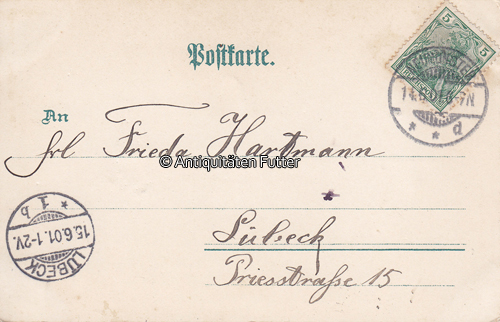 Postkarte.
5 5
14.6. 6-7N
* * d
An
Frl Frieda Hartmann
© Antiquitäten Futter
Lübeck
Priesstraße 15
* 1 b
15.6.01.1-2V.
LÜBECK